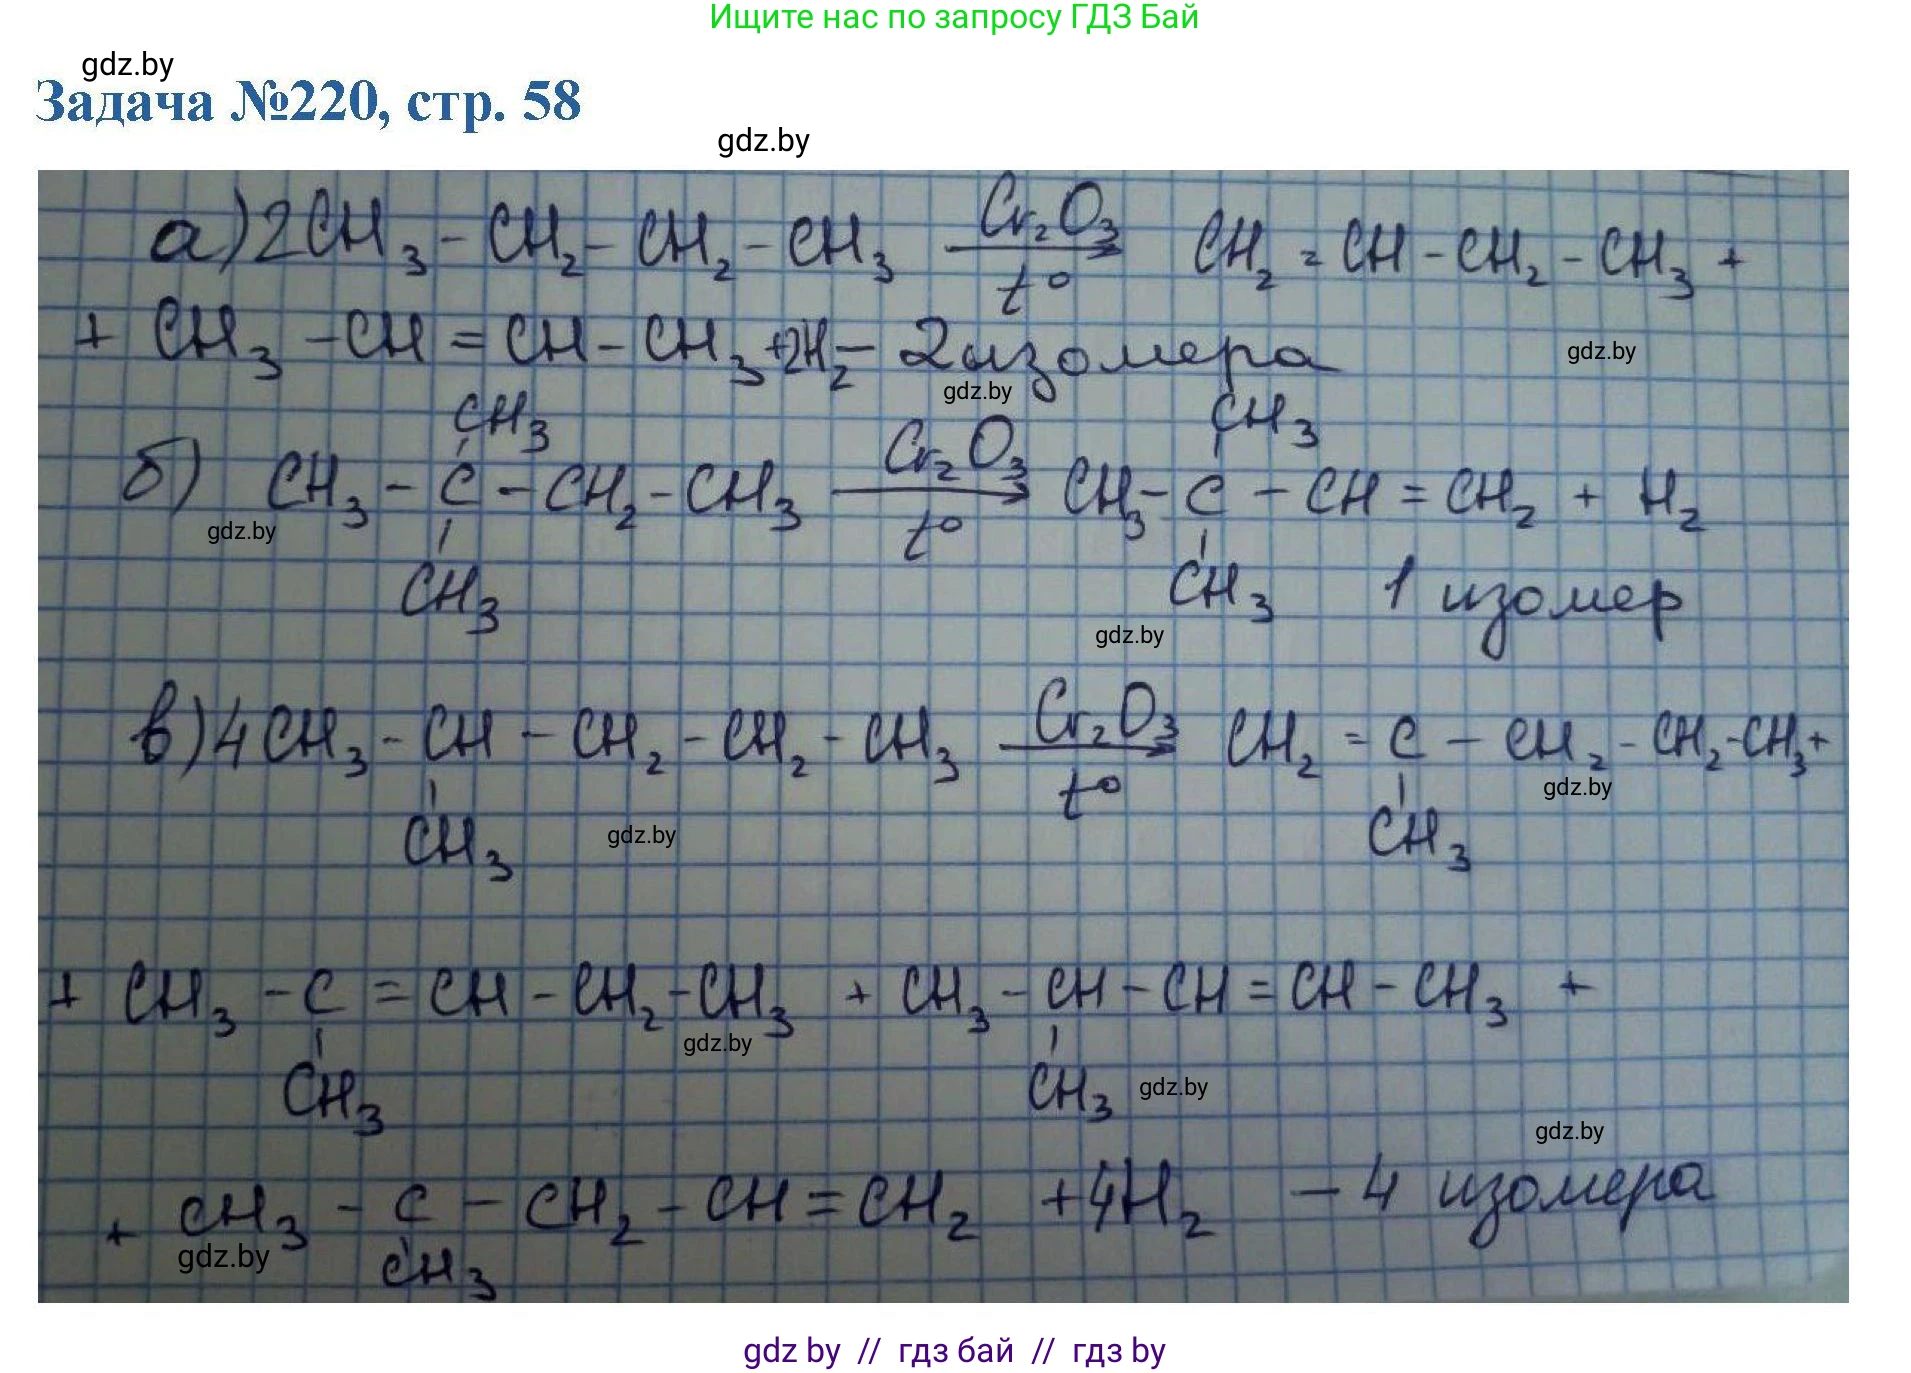 Ищите нас по запросу ГДЗ Бай
gdz.by
Задача №220, стр. 58
gdz.by
а) 2CH₃ - CH₂ - CH₂ - CH₃ Cr₂O₃ → t° CH₂ = CH - CH₂ - CH₃ +
+ CH₃ - CH = CH - CH₃ + 2H₂ - 2 изомера
gdz.by
gdz.by
CH₃ CH₃
б) CH₃ - C - CH₂ - CH₃ Cr₂O₃ → t° CH₃ - C - CH = CH₂ + H₂
gdz.by
CH₃ CH₃ 1 изомер
gdz.by
в) 4CH₃ - CH - CH₂ - CH₂ - CH₃ Cr₂O₃ → t° CH₂ = C - CH₂ - CH₂ - CH₃ +
gdz.by
CH₃ gdz.by CH₃
+ CH₃ - C = CH - CH₂ - CH₃ + CH₃ - CH - CH = CH - CH₃ +
gdz.by
CH₃ CH₃ gdz.by
gdz.by
+ CH₃ - C - CH₂ - CH = CH₂ + 4H₂ - 4 изомера
gdz.by
CH₃
gdz by // гдз бай // гдз by